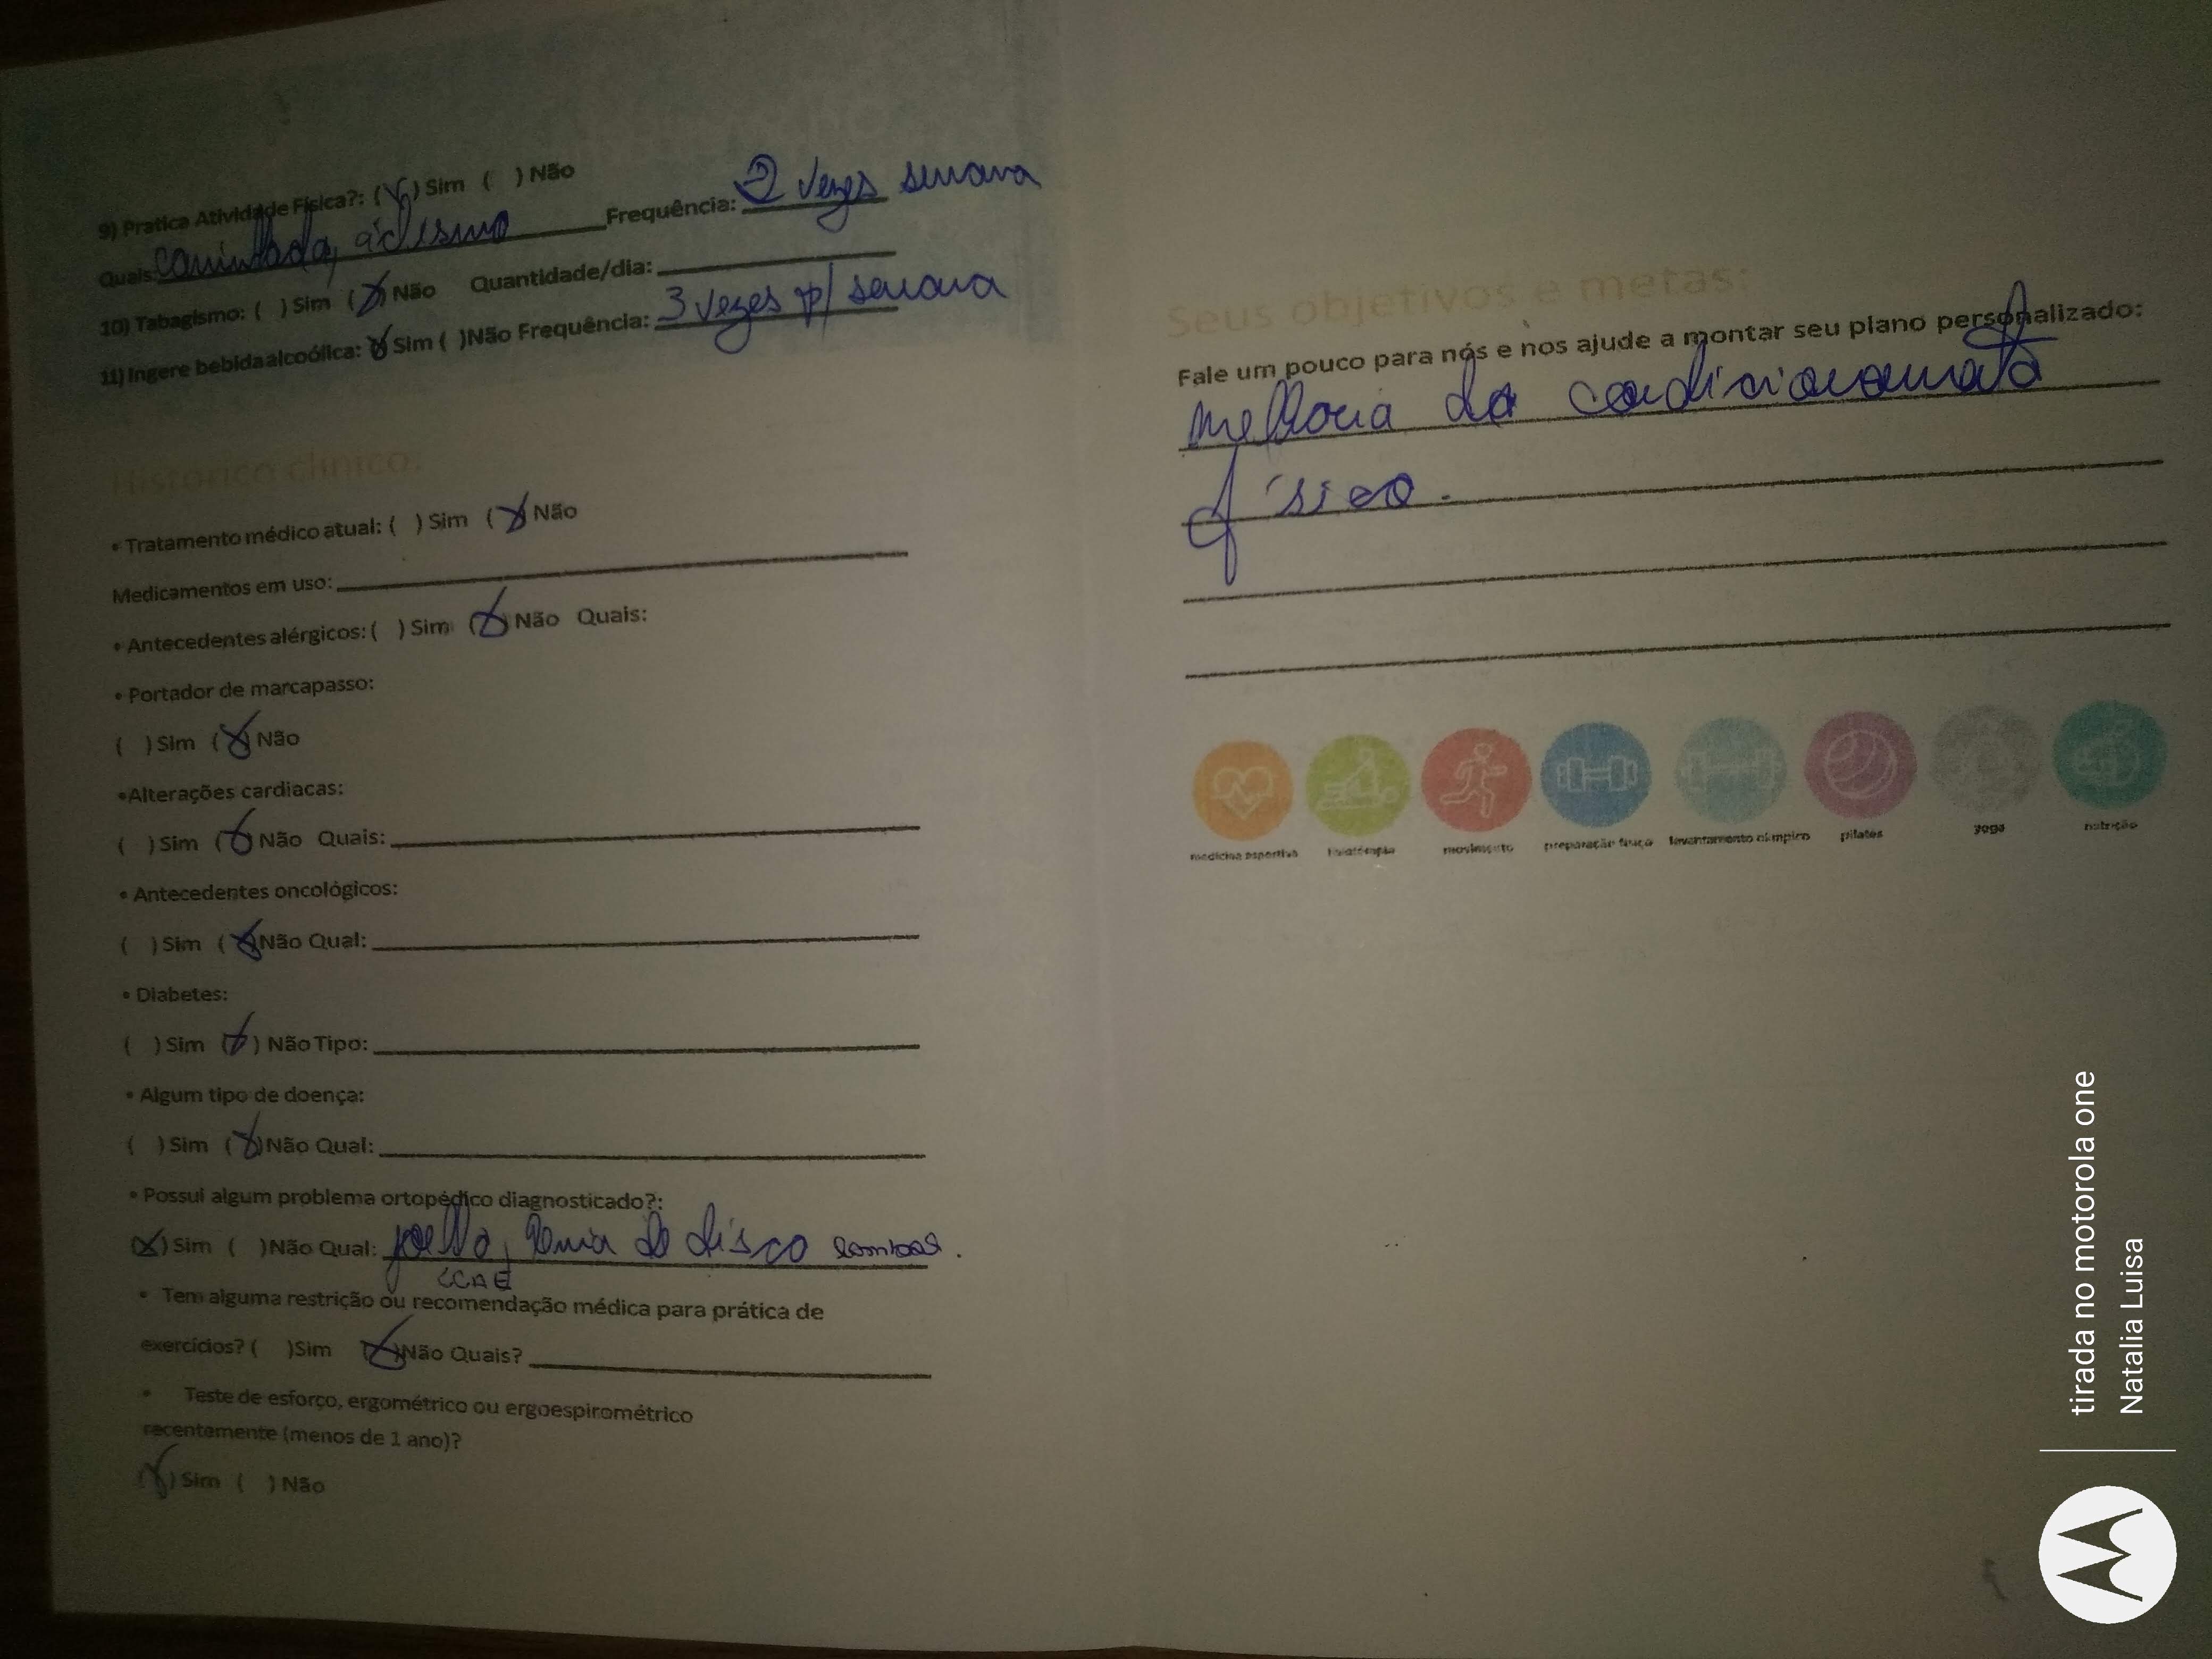 9) Pratica Atividade Física?: (X) Sim ( ) Não
Quais: caminhada, ciclismo Frequência: 2 vezes semana
10) Tabagismo: ( ) Sim (X) Não Quantidade/dia:
11) Ingere bebida alcoólica: X Sim ( )Não Frequência: 3 vezes p/ semana
• Tratamento médico atual: ( ) Sim (X) Não
Medicamentos em uso:
• Antecedentes alérgicos: ( ) Sim (X) Não Quais:
• Portador de marcapasso:
( ) Sim (X) Não
• Alterações cardiacas:
( ) Sim (X) Não Quais:
• Antecedentes oncológicos:
( ) Sim (X) Não Qual:
• Diabetes:
( ) Sim (X) Não Tipo:
• Algum tipo de doença:
( ) Sim (X) Não Qual:
• Possui algum problema ortopédico diagnosticado?:
(X) Sim ( ) Não Qual: de disco lombar.
• Tem alguma restrição ou recomendação médica para prática de
exercícios? ( )Sim (X)Não Quais?
• Teste de esforço, ergométrico ou ergoespirométrico
recentemente (menos de 1 ano)?
(X) Sim ( ) Não
Seus objetivos e metas:
Fale um pouco para nós e nos ajude a montar seu plano personalizado:
melhoria do condicionamento
físico.
medicina esportiva
fisioterapia
movimento
preparação física
levantamento olímpico
pilates
yoga
nutrição
tirada no motorola one
Natalia Luisa